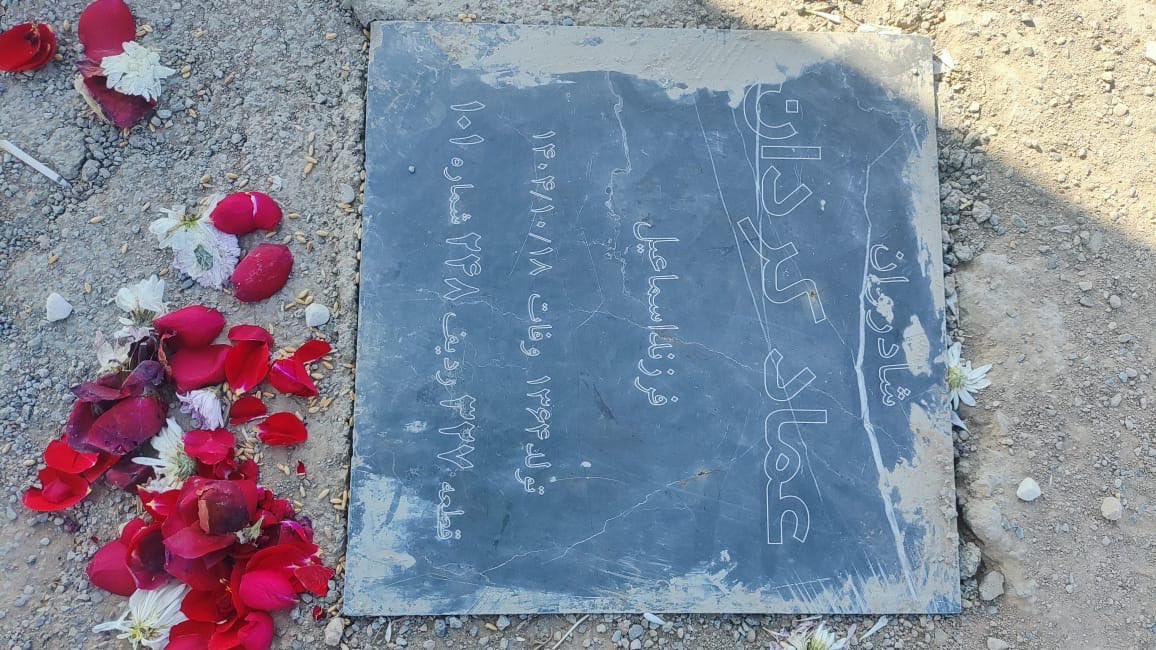 شادروان
عماد کردان
فرزند اسماعیل
تولد ۱۳۶۴ وفات ۱۴۰۴/۱۰/۱۸
قطعه ۳۲۷ ردیف ۲۴۸ شماره ۱۰۱